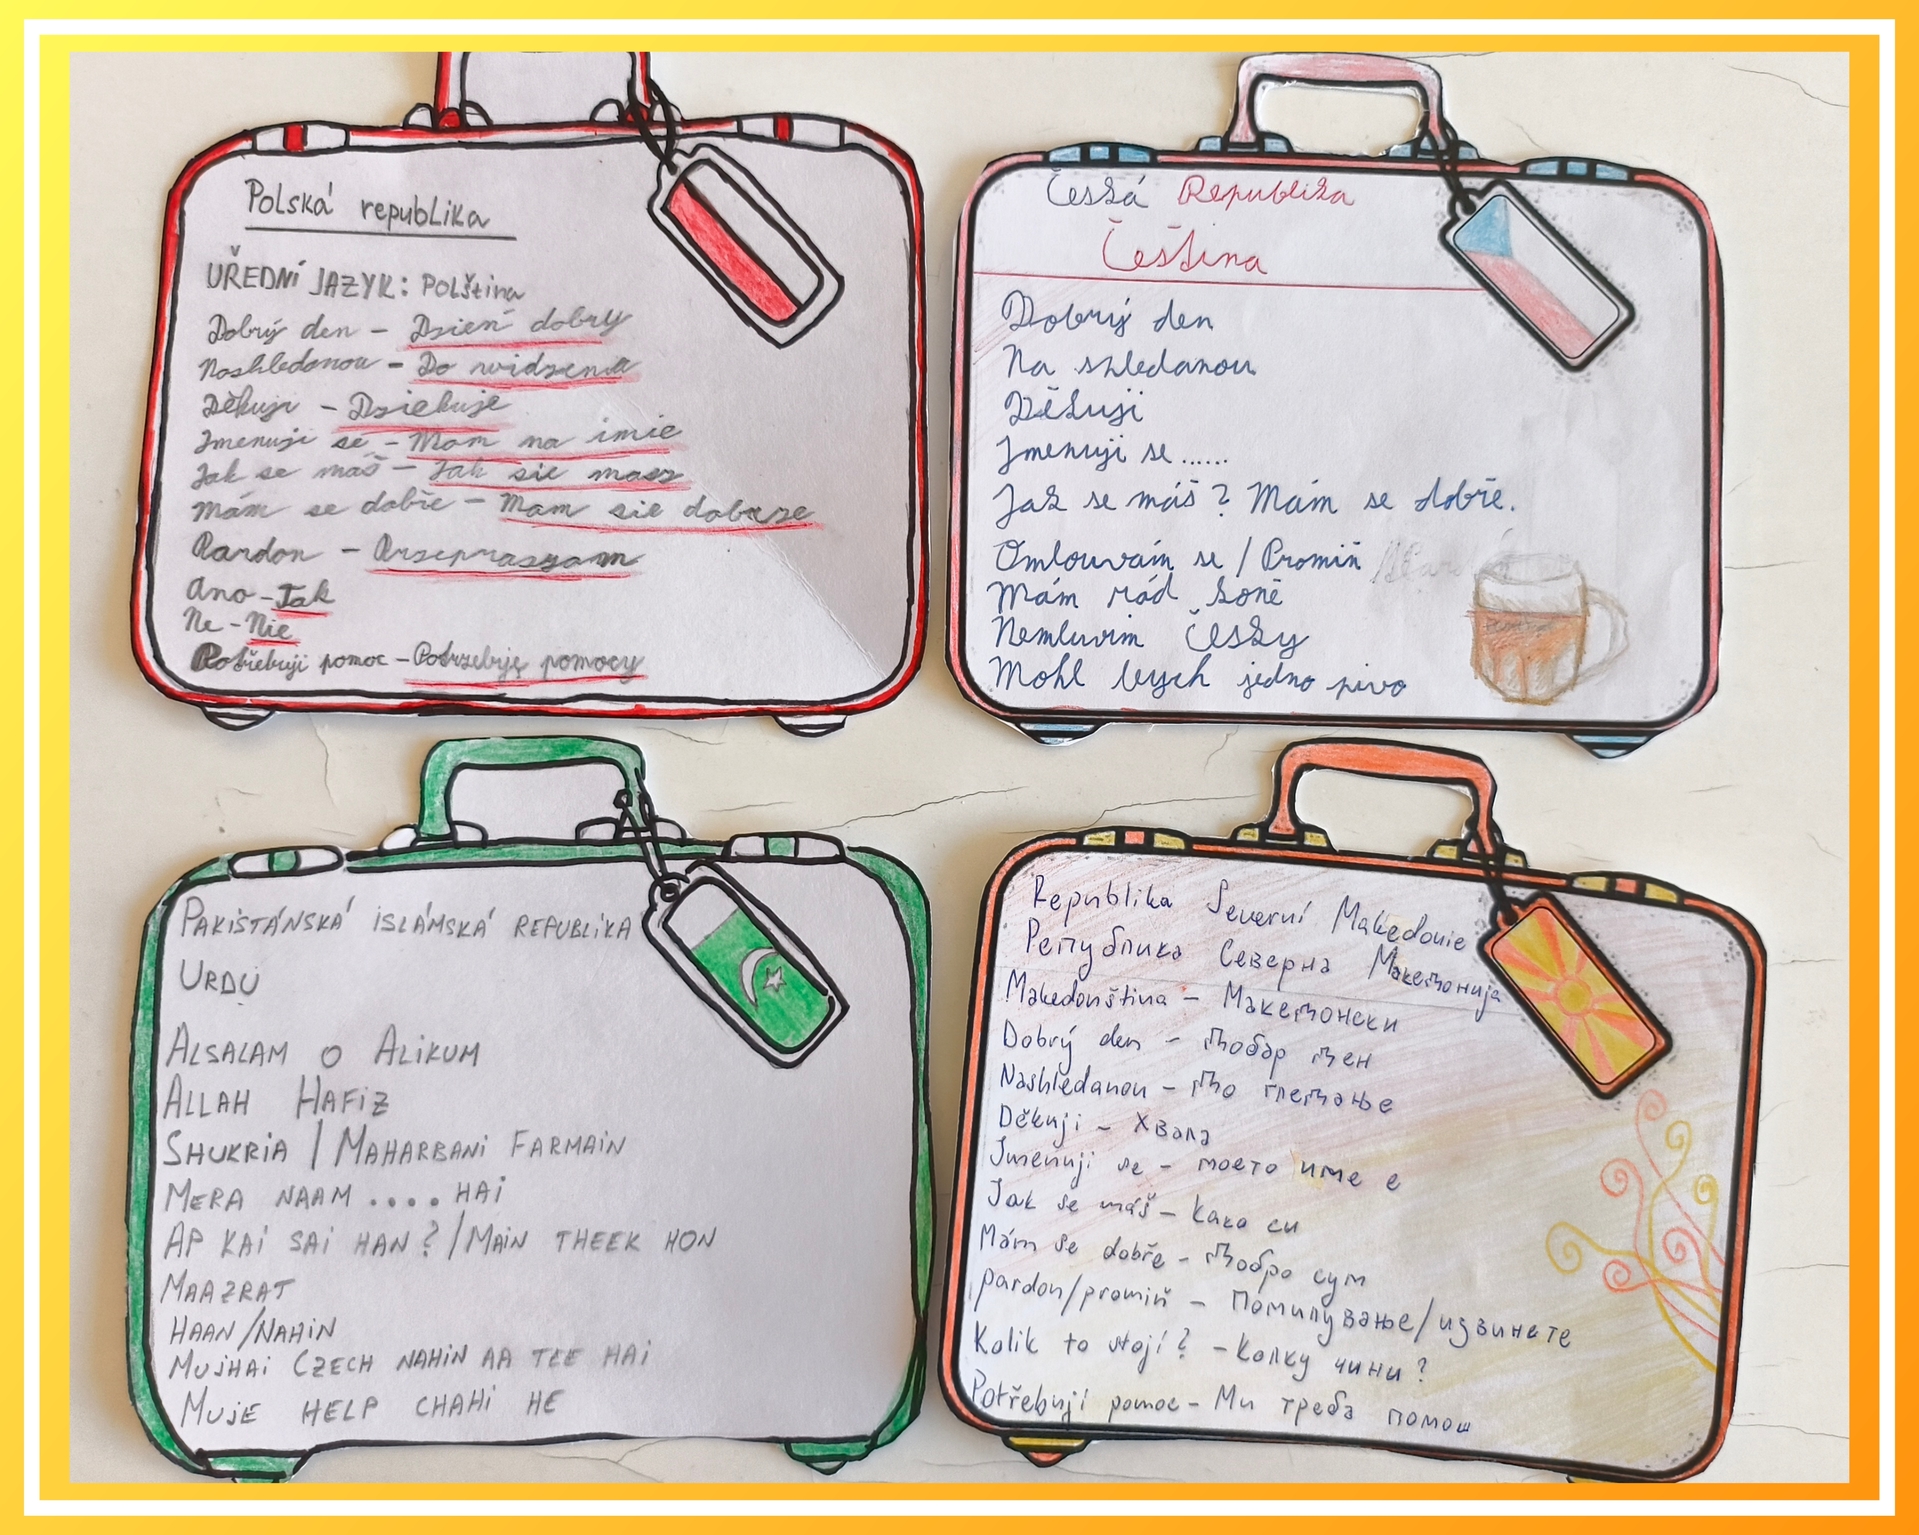 Polská republika
UŘEDNÍ JAZYK: Polština
Dobrý den - Dzień dobry
Nashledanou - Do widzenia
Děkuji - Dziekuje
Jmenuji se - Mam na imie
Jak se máš - Jak sie masz
Mám se dobře - Mam sie dobrze
Pardon - Przepraszam
Ano - Tak
Ne - Nie
Potřebuji pomoc - Potrzebuję pomocy
Česká Republika
Čeština
Dobrý den
Na shledanou
Děkuji
Jmenuji se ......
Jak se máš? Mám se dobře.
Omlouvám se / Promiň
Mám rád koně
Nemluvim česky
Mohl bych jedno pivo
PAKISTÁNSKÁ ISLÁMSKÁ REPUBLIKA
URDU
ALSALAM O ALIKUM
ALLAH HAFIZ
SHUKRIA / MAHARBANI FARMAIN
MERA NAAM .... HAI
AP KAI SAI HAN? / MAIN THEEK HON
MAAZRAT
HAAN/NAHIN
MUJHAI CZECH NAHIN AA TEE HAI
MUJE HELP CHAHI HE
Republika Severní Makedonie
Република Северна Македонија
Makedonština - Македонски
Dobrý den - Добар ден
Nashledanou - До гледање
Děkuji - Хвала
Jmenuji se - моето име е
Jak se máš - Како си
Mám se dobře - Добро сум
pardon/promiň - Помилување/извинете
Kolik to stojí? - Колку чини?
Potřebuji pomoc - Ми треба помош